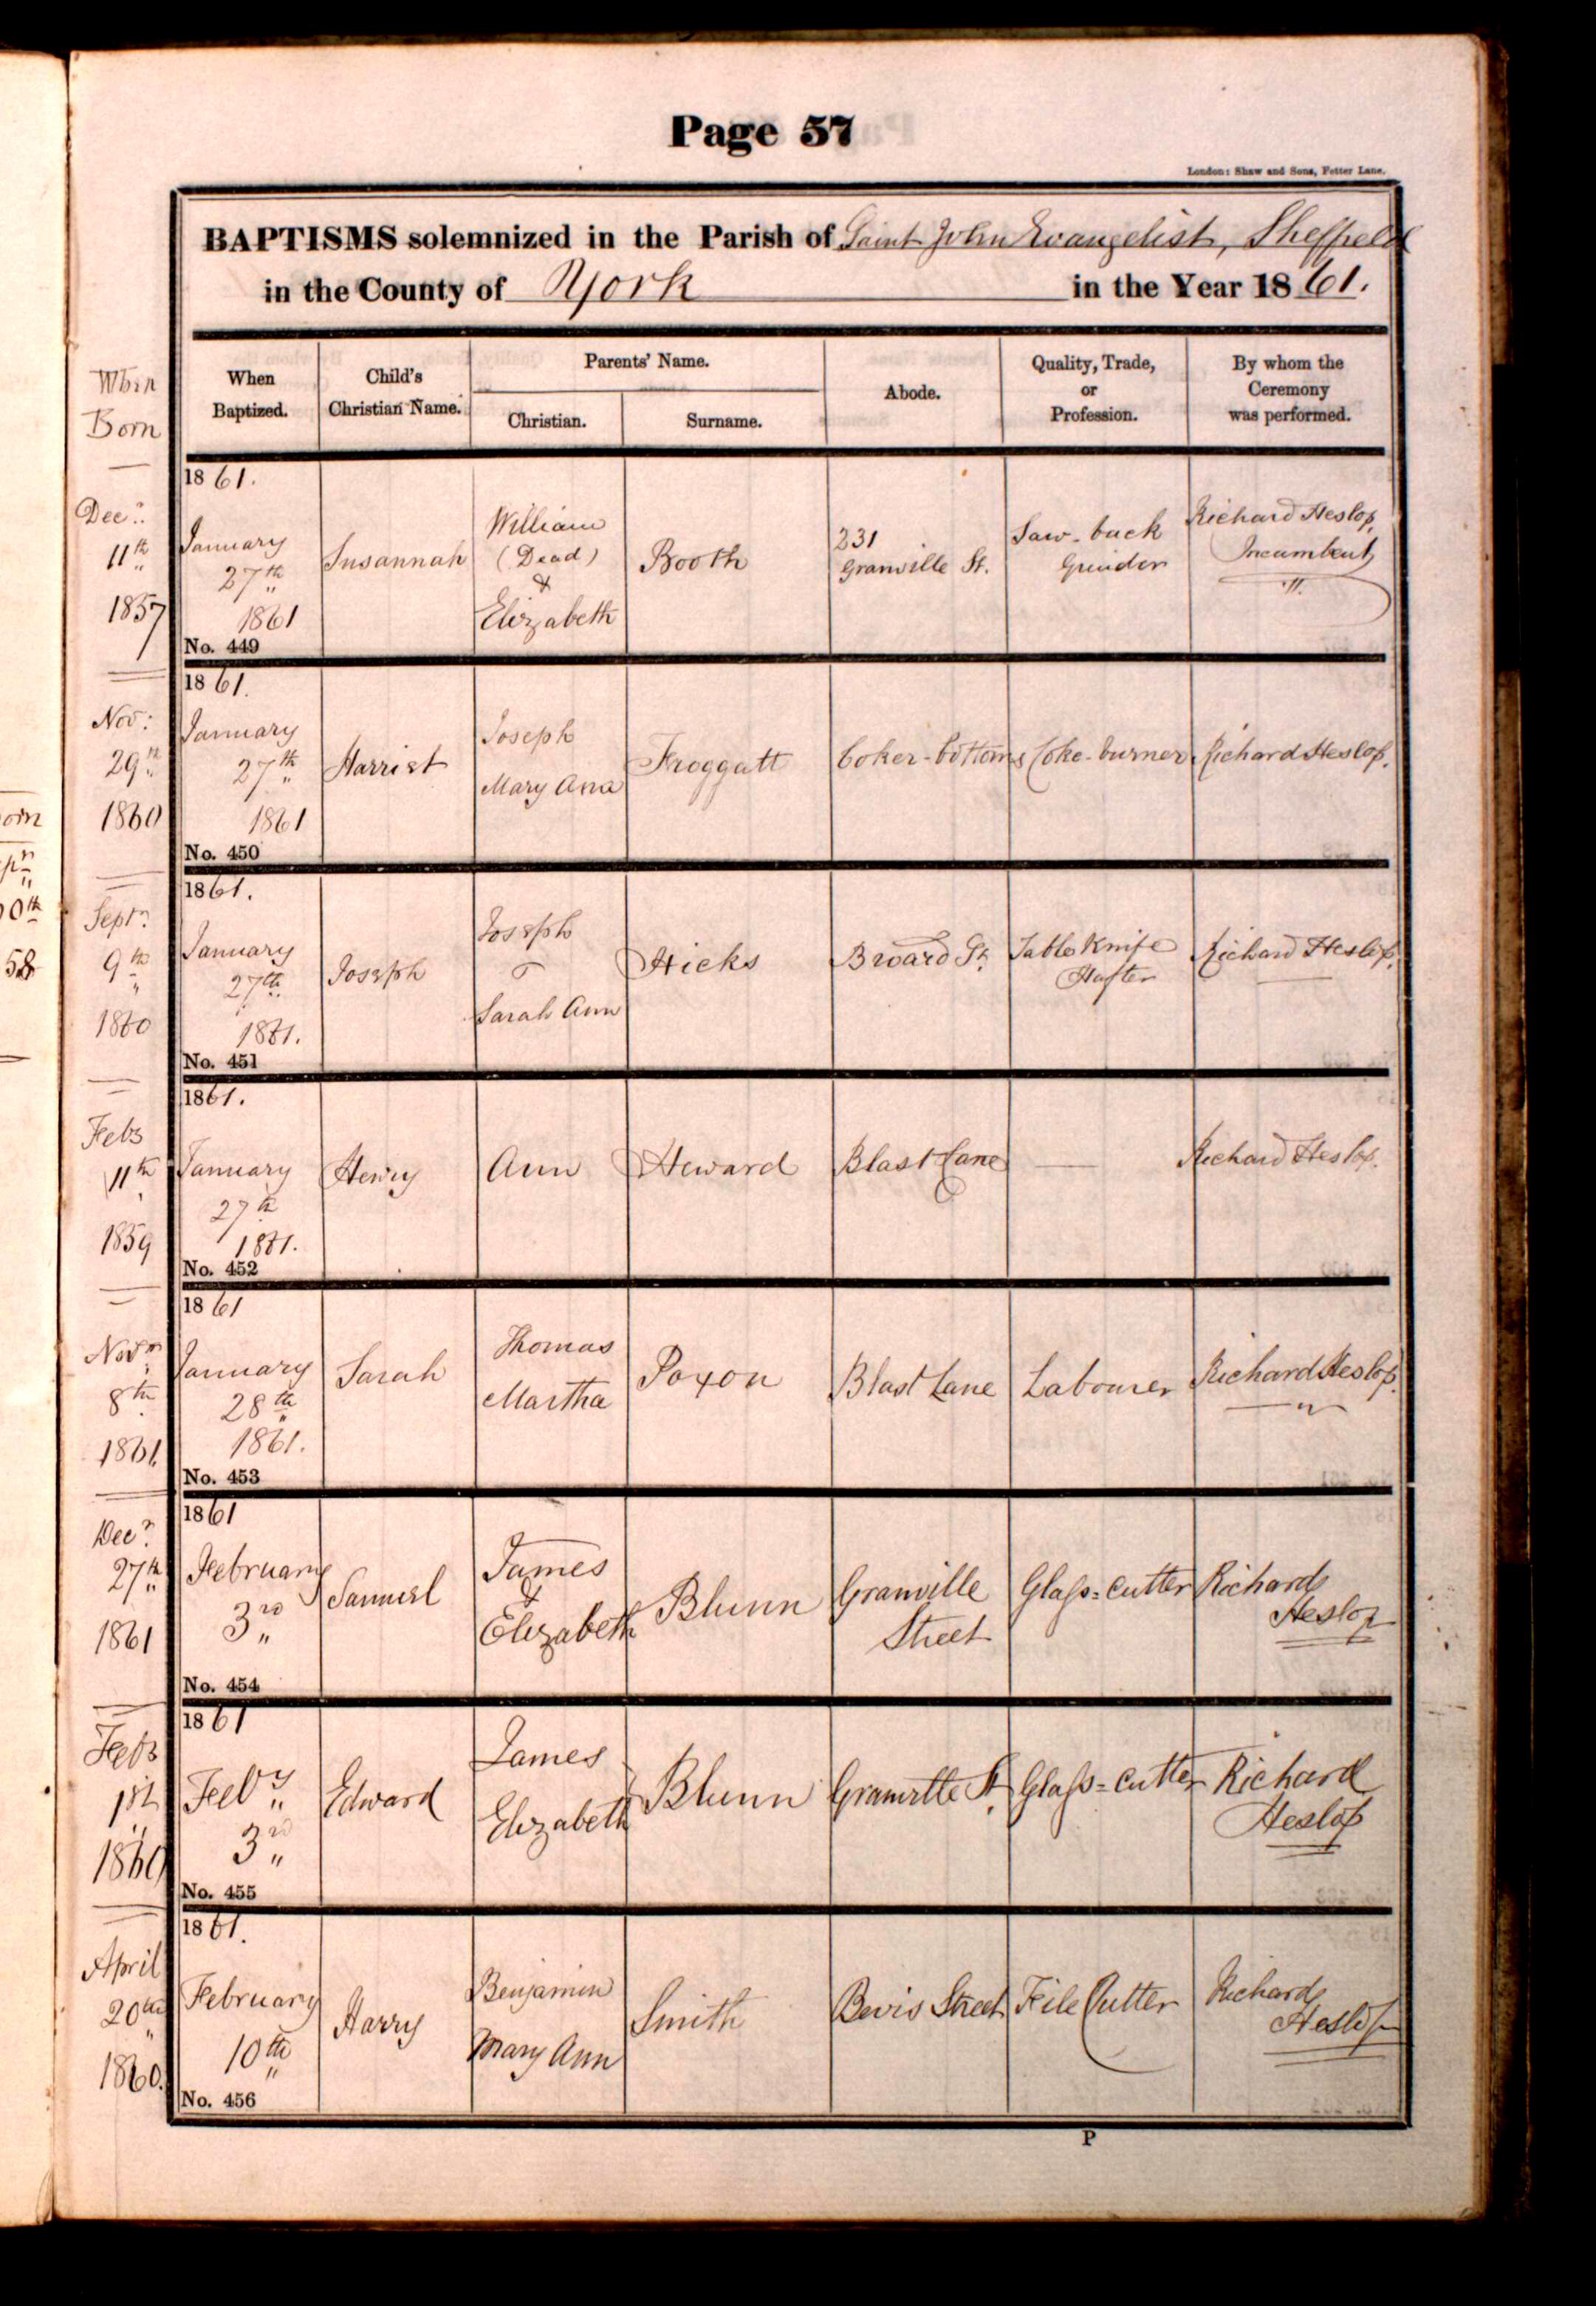 Page 57
London: Shaw and Sons, Fetter Lane.
BAPTISMS solemnized in the Parish of Saint John Evangelist, Sheffield
in the County of York in the Year 1861.
When
Born
When
Baptized.
Child's
Christian Name.
Parents' Name.
Christian.
Surname.
Abode.
Quality, Trade,
or
Profession.
By whom the
Ceremony
was performed.
Dec.r
11th
1857
1861.
January
27th
1861
No. 449
Susannah
William
(Dead)
&
Elizabeth
Booth
231
Granville St.
Saw-back
Grinder
Richard Heslop,
Incumbent
Nov:
29th
1860
1861.
January
27th
1861
No. 450
Harriet
Joseph
Mary Ann
Froggatt
Coker-bottoms
Coke-burner
Richard Heslop.
Septr.
9th
1860
1861.
January
27th
1861.
No. 451
Joseph
Joseph
Sarah Ann
Hicks
Broard St.
Table Knife
Hafter
Richard Heslop.
Feby
11th
1859
1861.
January
27th
1861.
No. 452
Henry
Ann
Heward
Blast Lane
Richard Heslop.
Novr
8th
1861
1861
January
28th
1861.
No. 453
Sarah
Thomas
Martha
Poxon
Blast Lane
Labourer
Richard Heslop.
Decr
27th
1861
1861
February
3rd
No. 454
Samuel
James
&
Elizabeth
Blunn
Granville
Street
Glass=cutter
Richard
Heslop
Feby
1st
1860
1861
Feby
3rd
No. 455
Edward
James
Elizabeth
Blunn
Granville St.
Glass=cutter
Richard
Heslop
April
20th
1860.
1861.
February
10th
No. 456
Harry
Benjamin
Mary Ann
Smith
Bevis Street
File Cutter
Richard
Heslop
P